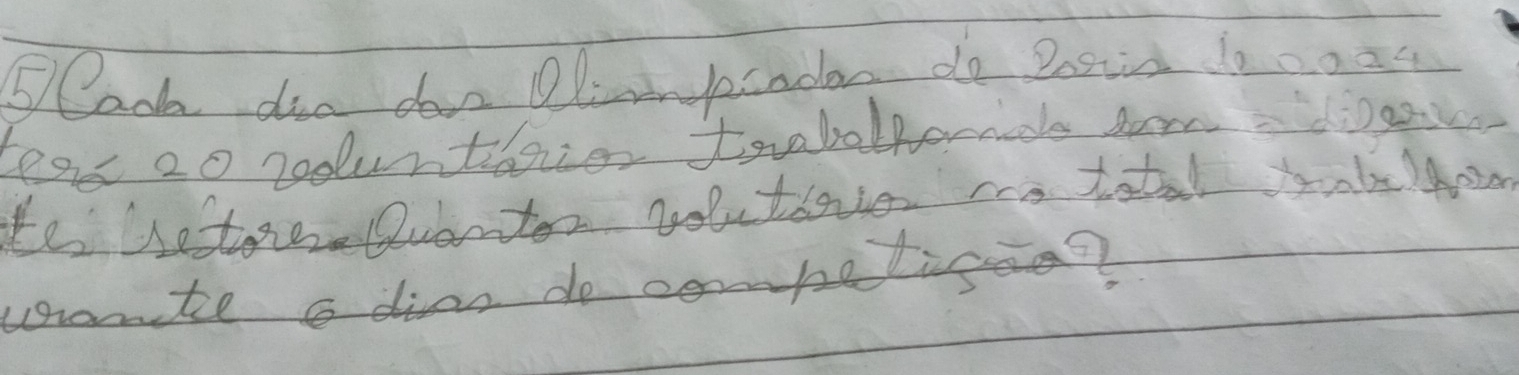 5) Cada dia das Olimpíadas de Paris de 2024
terá 20 voluntários trabalhando em diferen
tes setores. Quantos volutários no total trabalharam
urante 6 dias de competição?